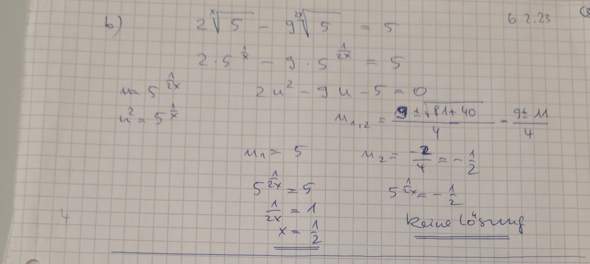 b) 2 ˣ√5 − 9 ²ˣ√5 = 5 6.2.23
2·5^(1/x) − 9·5^(1/2x) = 5
u = 5^(1/2x) 2u² − 9u − 5 = 0
u² = 5^(1/x) u₁,₂ = (9 ± √(81+40))/4 = (9 ± 11)/4
u₁ = 5 u₂ = −2/4 = −1/2
5^(1/2x) = 5 5^(1/2x) = −1/2
1/2x = 1 keine Lösung
x = 1/2